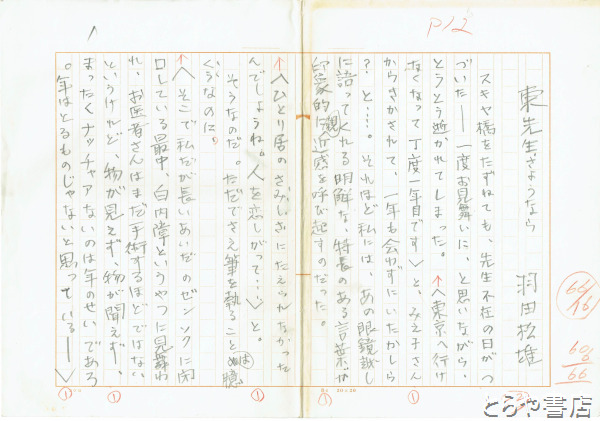 P12
東先生さようなら
羽田松雄
スキヤ橋をたずねても、先生不在の日がつ
づいた――一度お見舞いに、と思いながら、
とうとう逝かれてしまった。〈東京へ行け
なくなって丁度一年目です〉と、みえ子さん
からきかされて、一年も会わずにいたかしら
?と…。それほど私には、あの眼鏡越し
に語ってくれる明解な、特長のある言葉が
印象的親近感を呼び起すのだった。
〈ひとり居のさみしさにたえられなかった
んでしょうね。人を恋しがって…〉と。
そうなのだ。ただでさえ筆を執ること
くうなのに。
〈そこで私だが長いあいだのゼンソクに閉
口している最中、白内障というやつに見舞わ
れ、お医者さんはまだ手術するほどではない
というけれど、物が見えず、物が聞えず、
まったくナッチャアないのは年のせいであろ
う。年はとるものじゃないと思っている――〉
20×20
とらや書店